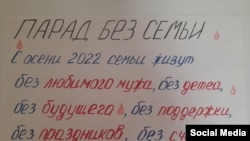 ПАРАД БЕЗ СЕМЬИ
С осени 2022 семьи живут
без любимого мужа, без детей,
без будущего, без поддержки,
без праздников, без
Social Media